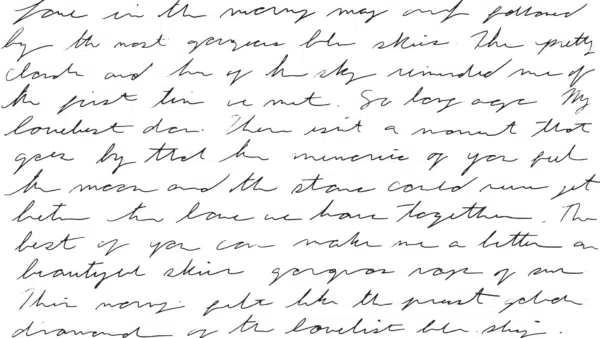 Love in the morning may and followed
by the most gorgeous blue skies. The pretty
clouds and hue of the sky reminded me of
the first time we met. So long ago. My
loveliest dear. There isn't a moment that
goes by that the memories of you feel
the moon and the stars could never get
between the love we have together. The
best of you can make me a better
beautiful skies gorgeous rays of sun
This morning felt like the golden
of the loveliest blue sky.